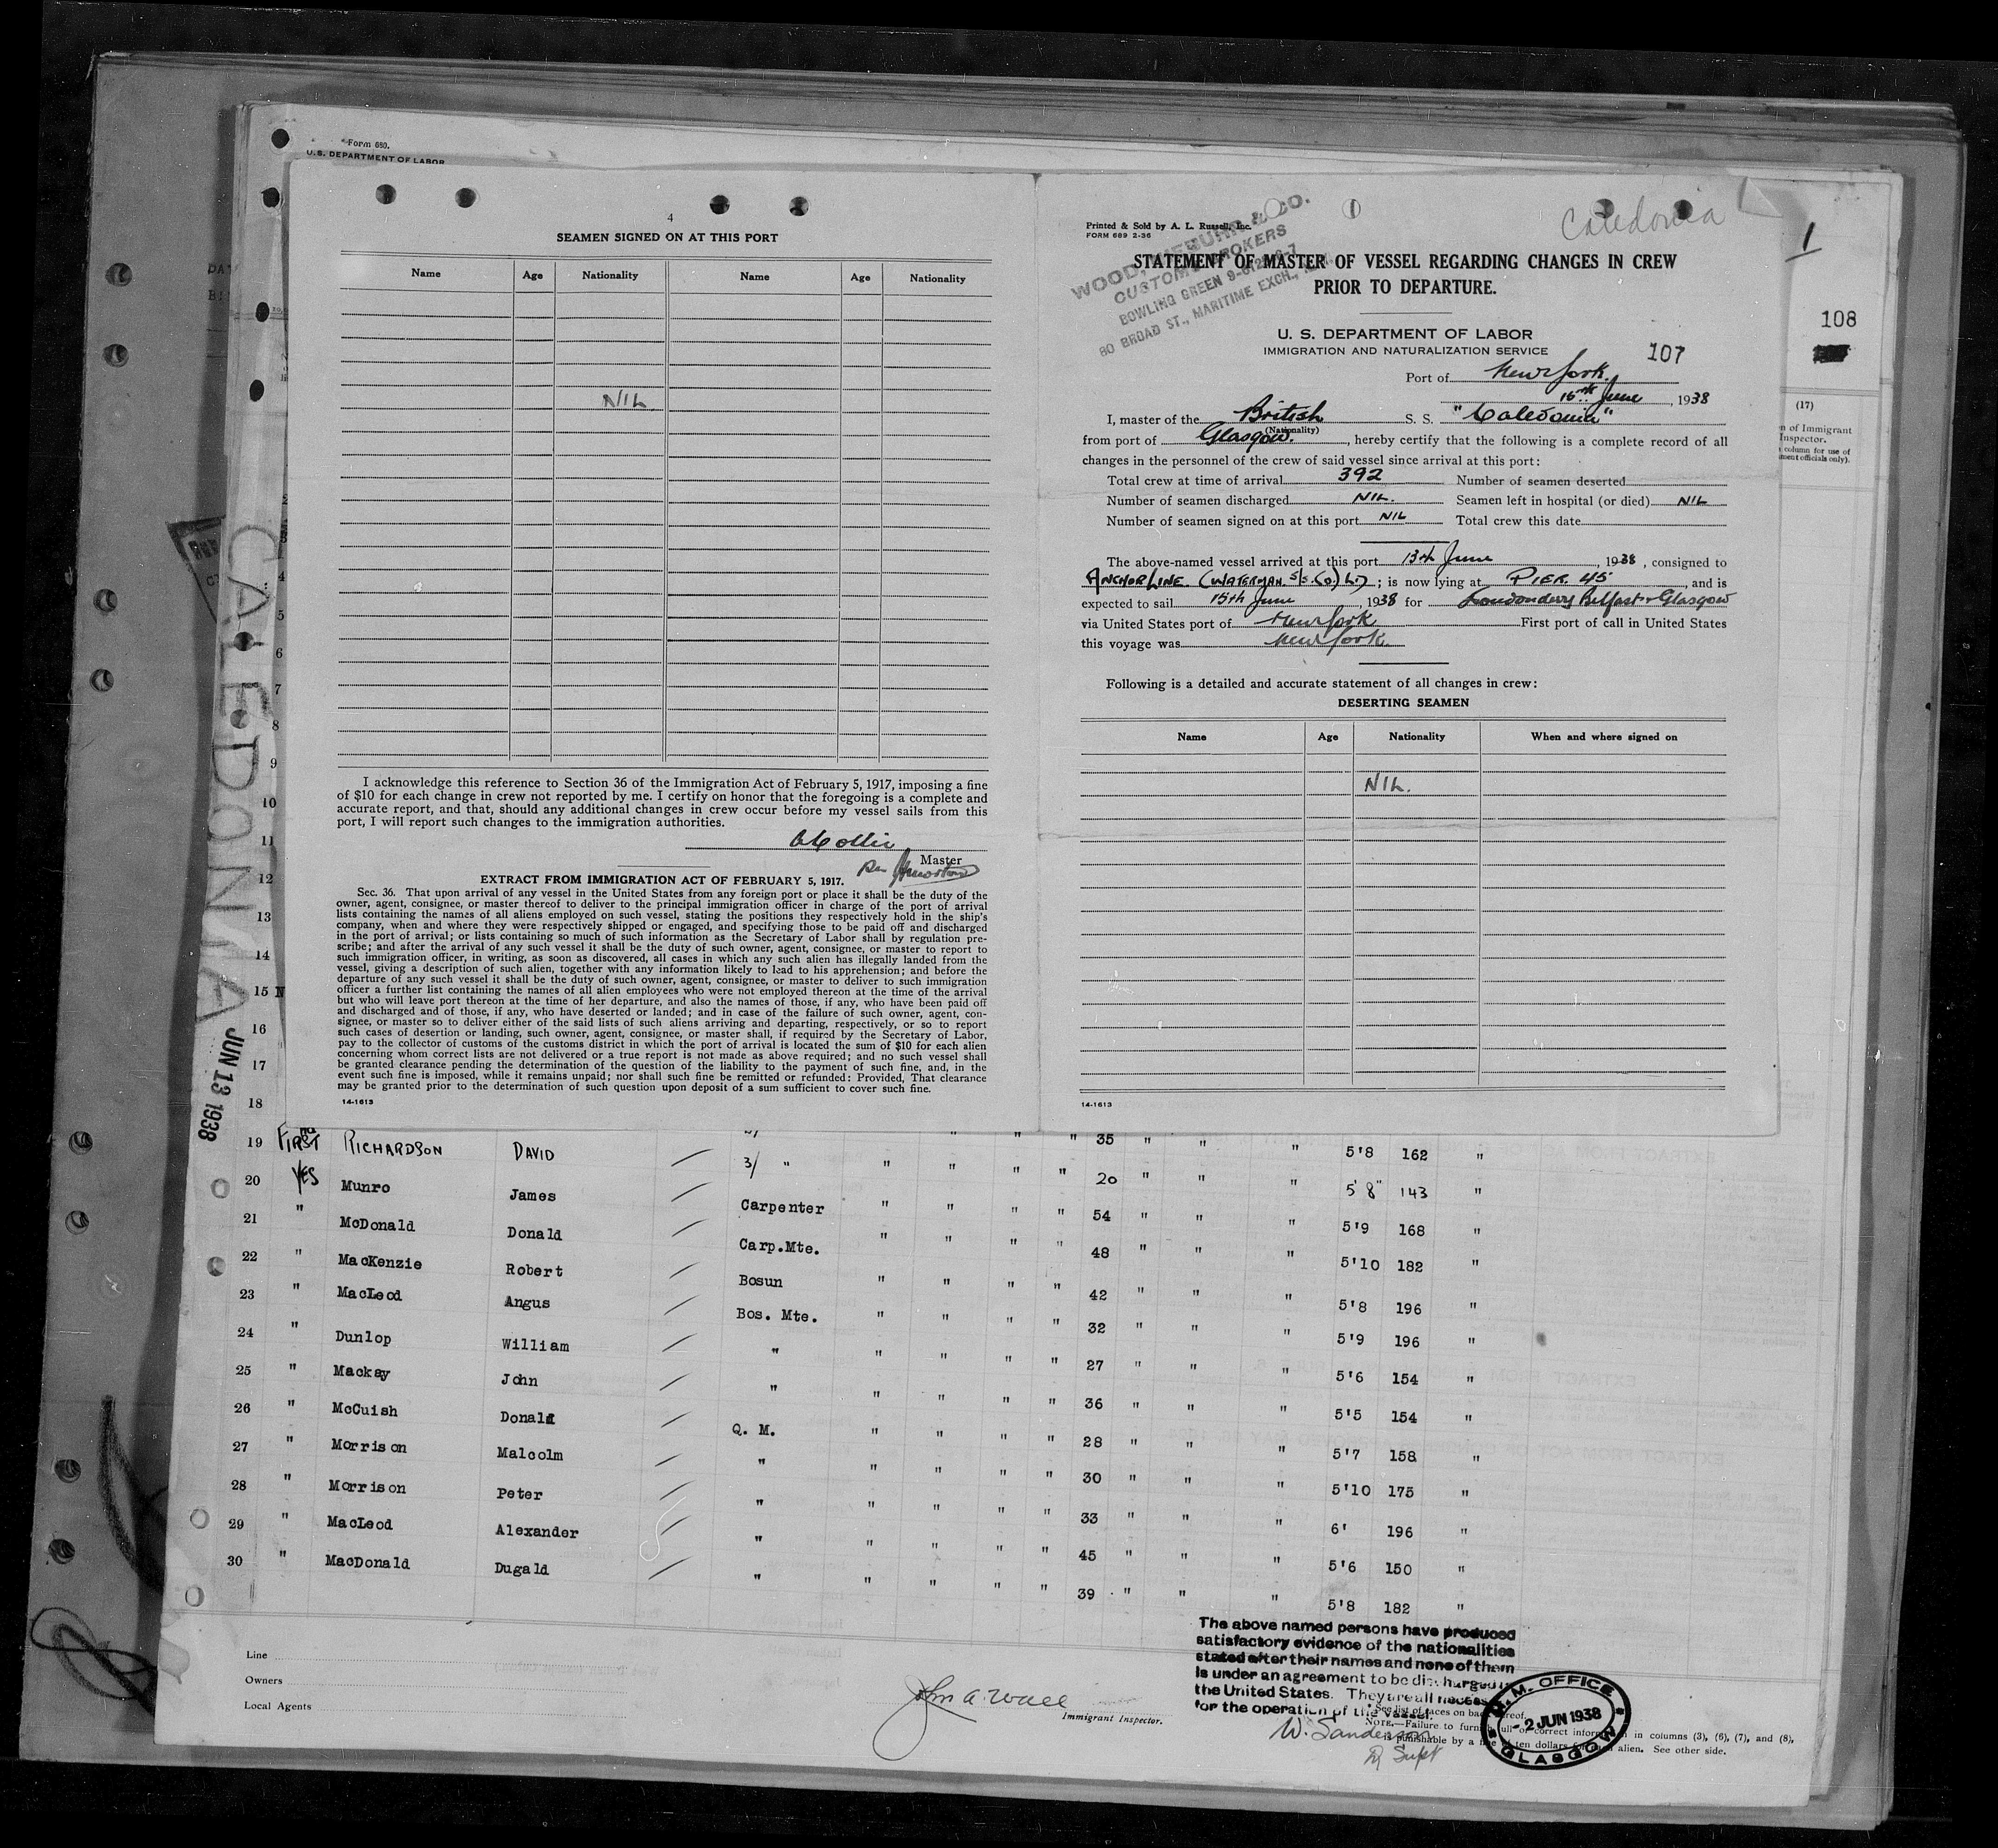 Form 680.
U.S. DEPARTMENT OF LABOR
4
SEAMEN SIGNED ON AT THIS PORT
Name Age Nationality Name Age Nationality
NIL
I acknowledge this reference to Section 36 of the Immigration Act of February 5, 1917, imposing a fine
of $10 for each change in crew not reported by me. I certify on honor that the foregoing is a complete and
accurate report, and that, should any additional changes in crew occur before my vessel sails from this
port, I will report such changes to the immigration authorities.
Master
EXTRACT FROM IMMIGRATION ACT OF FEBRUARY 5, 1917.
Sec. 36. That upon arrival of any vessel in the United States from any foreign port or place it shall be the duty of the
owner, agent, consignee, or master thereof to deliver to the principal immigration officer in charge of the port of arrival
lists containing the names of all aliens employed on such vessel, stating the positions they respectively hold in the ship's
company, when and where they were respectively shipped or engaged, and specifying those to be paid off and discharged
in the port of arrival; or lists containing so much of such information as the Secretary of Labor shall by regulation pre-
scribe; and after the arrival of any such vessel it shall be the duty of such owner, agent, consignee, or master to report to
such immigration officer, in writing, as soon as discovered, all cases in which any such alien has illegally landed from the
vessel, giving a description of such alien, together with any information likely to lead to his apprehension; and before the
departure of any such vessel it shall be the duty of such owner, agent, consignee, or master to deliver to such immigration
officer a further list containing the names of all alien employees who were not employed thereon at the time of the arrival
but who will leave port thereon at the time of her departure, and also the names of those, if any, who have been paid off
and discharged and of those, if any, who have deserted or landed; and in case of the failure of such owner, agent, con-
signee, or master so to deliver either of the said lists of such aliens arriving and departing, respectively, or so to report
such cases of desertion or landing, such owner, agent, consignee, or master shall, if required by the Secretary of Labor,
pay to the collector of customs of the customs district in which the port of arrival is located the sum of $10 for each alien
concerning whom correct lists are not delivered or a true report is not made as above required; and no such vessel shall
be granted clearance pending the determination of the question of the liability to the payment of such fine, and, in the
event such fine is imposed, while it remains unpaid; nor shall such fine be remitted or refunded: Provided, That clearance
may be granted prior to the determination of such question upon deposit of a sum sufficient to cover such fine.
14-1613
Caledonia
1
Printed & Sold by A. L. Russell, Inc.
FORM 689 2-36
CUSTOMS BROKERS
BOWLING GREEN
80 BROAD ST., MARITIME EXCH.,
STATEMENT OF MASTER OF VESSEL REGARDING CHANGES IN CREW
PRIOR TO DEPARTURE.
U. S. DEPARTMENT OF LABOR
IMMIGRATION AND NATURALIZATION SERVICE
107
108
Port of New York.
15th June, 1938
I, master of the British S. S. "Caledonia"
(Nationality)
from port of Glasgow., hereby certify that the following is a complete record of all
changes in the personnel of the crew of said vessel since arrival at this port:
Total crew at time of arrival 392 Number of seamen deserted
Number of seamen discharged NIL. Seamen left in hospital (or died) NIL
Number of seamen signed on at this port NIL Total crew this date
The above-named vessel arrived at this port 13th June, 1938, consigned to
ANCHOR LINE (WATERMAN. S/S. Co) Ld; is now lying at PIER 45, and is
expected to sail 15th June, 1938 for Londonderry Belfast & Glasgow
via United States port of New York First port of call in United States
this voyage was New York.
Following is a detailed and accurate statement of all changes in crew:
DESERTING SEAMEN
Name Age Nationality When and where signed on
NIL.
14-1613
(17)
n of Immigrant
Inspector.
column for use of
ment officials only).
CALEDONIA
JUN 13 1938
4
5
6
7
8
9
10
11
12
13
14
15 N
16
17
18
19 FIRST RICHARDSON DAVID 3/ " " " " " 35 " " " 5'8 162 "
20 YES Munro James Carpenter " " " " 20 " " " 5'8" 143 "
21 " McDonald Donald Carp.Mte. " " " " 54 " " " 5'9 168 "
22 " MacKenzie Robert Bosun " " " " 48 " " " 5'10 182 "
23 " MacLeod Angus Bos. Mte. " " " " 42 " " " 5'8 196 "
24 " Dunlop William " " " " " 32 " " " 5'9 196 "
25 " Mackay John " " " " " 27 " " " 5'6 154 "
26 " McCuish Donald Q. M. " " " " 36 " " " 5'5 154 "
27 " Morrison Malcolm " " " " " 28 " " " 5'7 158 "
28 " Morrison Peter " " " " " 30 " " " 5'10 175 "
29 " MacLeod Alexander " " " " " 33 " " " 6' 196 "
30 " MacDonald Dugald " " " " " 45 " " " 5'6 150 "
39 " " " 5'8 182 "
Line
Owners
Local Agents
John A. Wall
Immigrant Inspector.
The above named persons have produced
satisfactory evidence of the nationalities
stated after their names and none of them
is under an agreement to be discharged in
the United States. They are all necess
for the operation of the vessel.
W. Sanderson
Supt
M. M. OFFICE
- 2 JUN 1938
GLASGOW
See list of races on back hereof.
NOTE.—Failure to furnish full or correct information in columns (3), (6), (7), and (8),
is punishable by a fine of ten dollars for each alien. See other side.